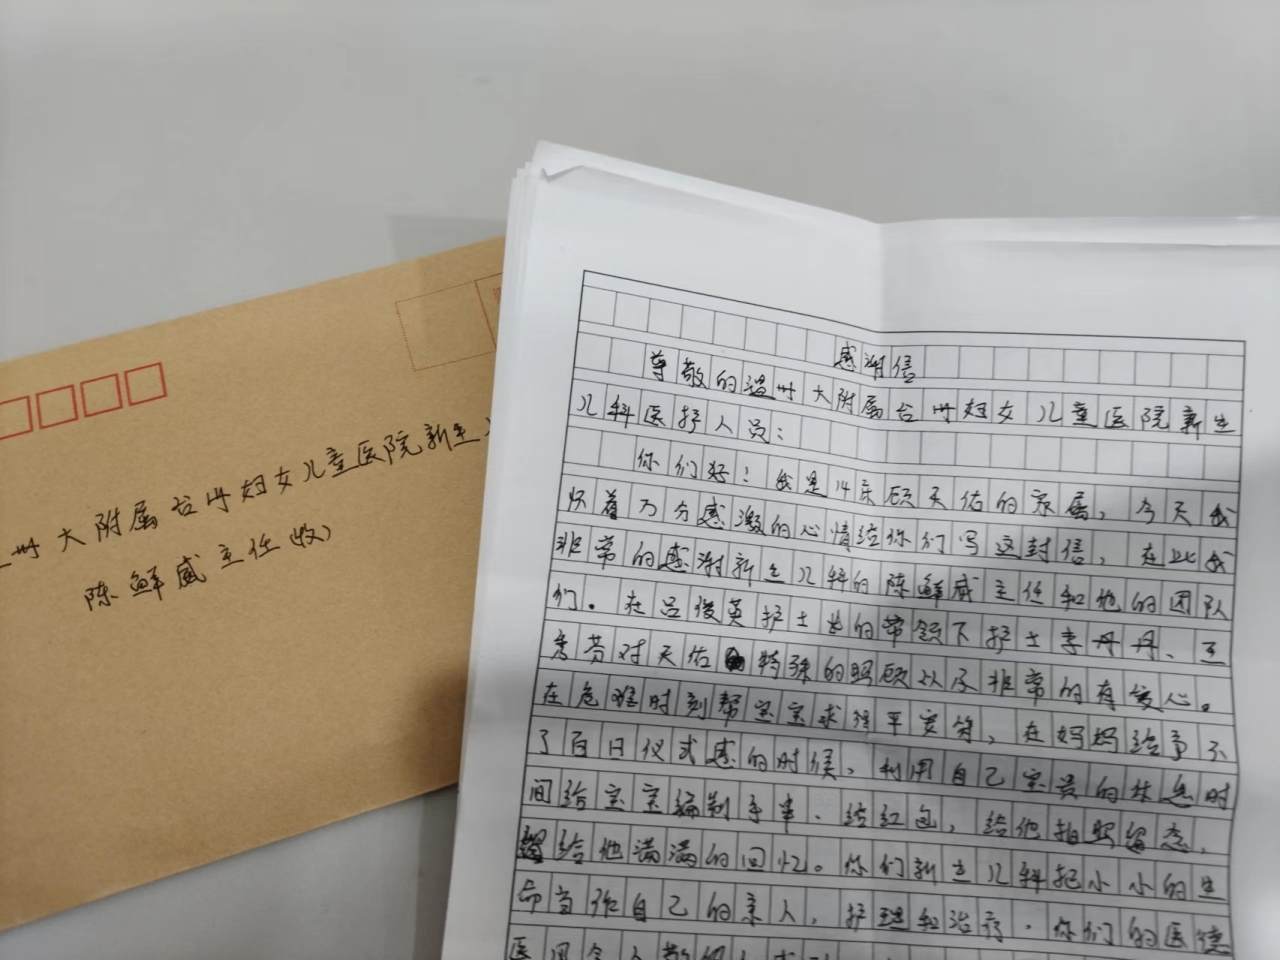 州大附属台州妇女儿童医院新生
陈鲜威主任(收)
感谢信
尊敬的温州大附属台州妇女儿童医院新生
儿科医护人员：
你们好！我是14床顾天佑的家属，今天我
怀着万分感激的心情给你们写这封信，在此我
非常的感谢新生儿科的陈鲜威主任和他的团队
们。在吕俊英护士长的带领下护士李丹丹、王
秀芬对天佑特殊的照顾以及非常的有爱心。
在危难时刻帮宝宝求得平安符，在妈妈给予不
了百日仪式感的时候，利用自己宝贵的休息时
间给宝宝编制手串、给红包，给他拍照留念，
给他满满的回忆。你们新生儿科把小小的生
命当作自己的亲人，护理和治疗，你们的医德